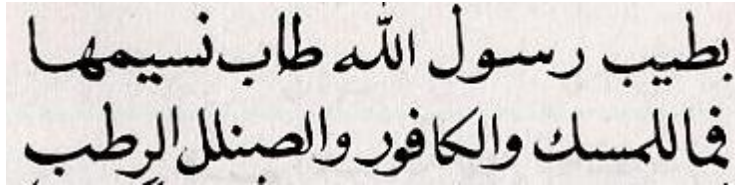 بطيب رسول الله طاب نسيمها
فما للمسك والكافور والصندل الرطب